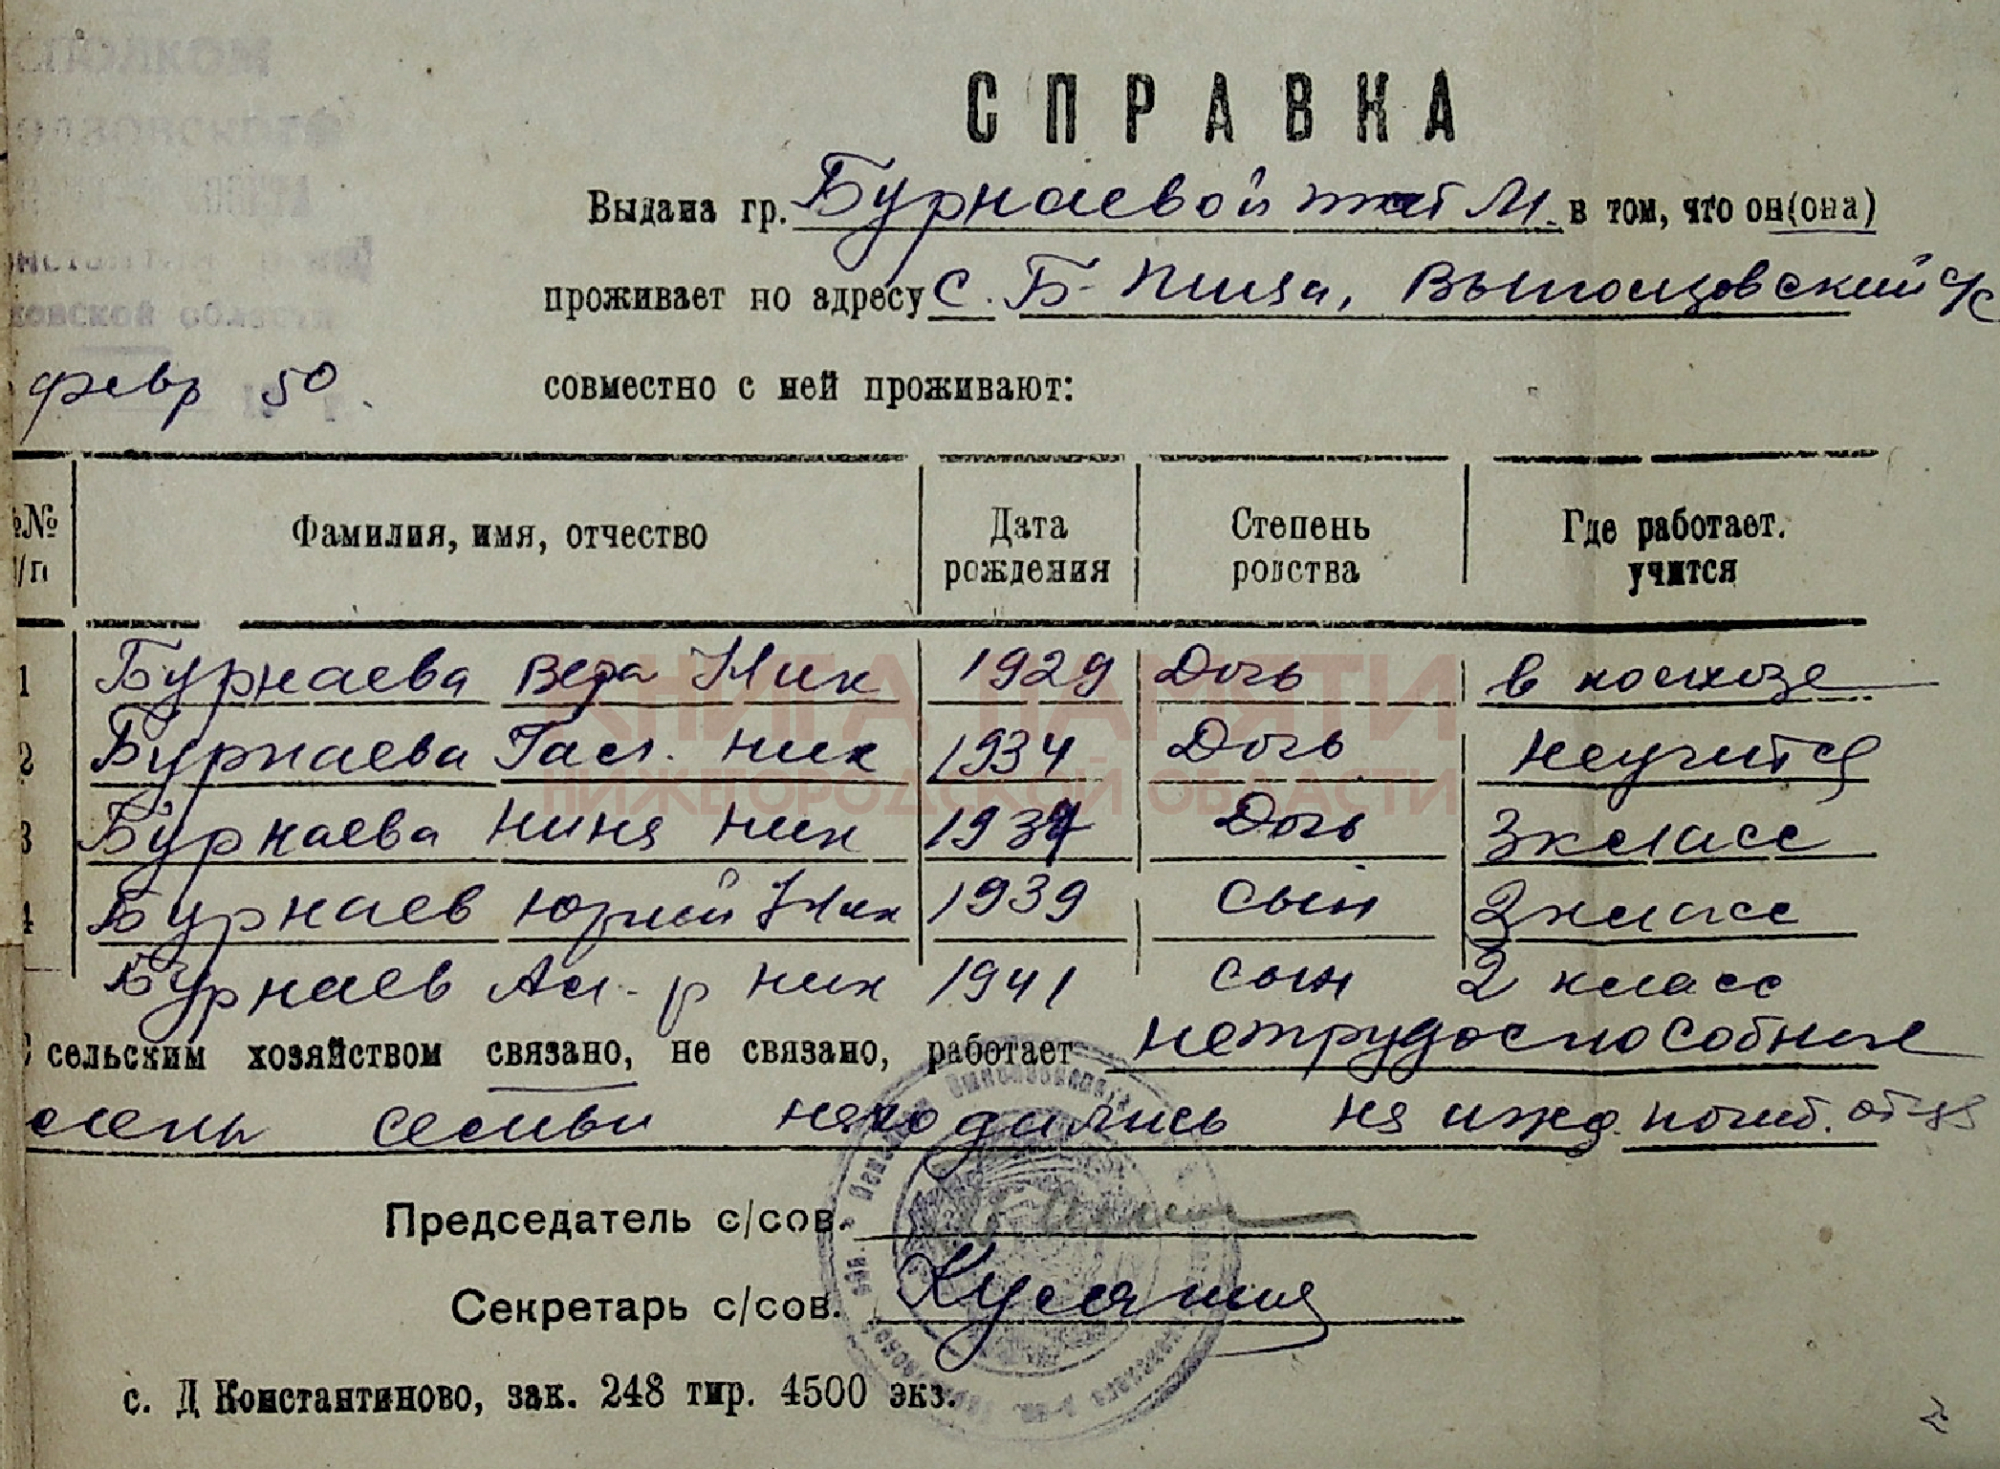 СПРАВКА
Выдана гр. Бурнаевой М. в том, что он(она)
проживает по адресу с. Б-Пица, Выползовский с/с
ковской области
февр 50
совместно с ней проживают:
№№ п/п Фамилия, имя, отчество Дата рождения Степень родства Где работает. учится
1 Бурнаева Вера Ник 1929 Дочь в колхозе
2 Бурнаева Гал. Ник 1934 Дочь неучится
3 Бурнаева Нина Ник 1937 Дочь 3 класс
4 Бурнаев Юрий Ник 1939 сын 2 класс
Бурнаев Ал-р Ник 1941 сын 2 класс
КНИГА ПАМЯТИ
НИЖЕГОРОДСКОЙ ОБЛАСТИ
С сельским хозяйством связано, не связано, работает нетрудоспособные
члены семьи находились на ижд. погиб. отца
Председатель с/сов.
Секретарь с/сов.
с. Д Константиново, зак. 248 тир. 4500 экз.